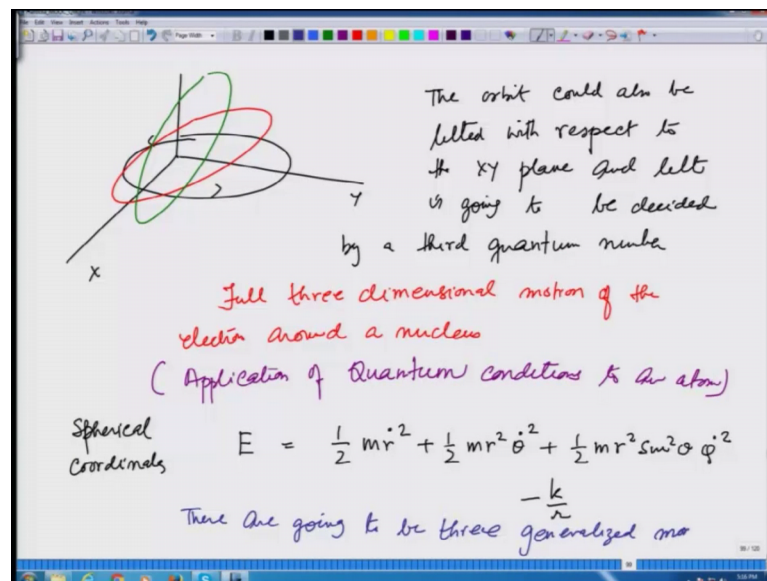 File Edit View Insert Actions Tools Help
Page Width
The orbit could also be
tilted with respect to
the XY plane and tilt
is going to be decided
by a third quantum number
Y
X
Full three dimensional motion of the
electron around a nucleus
( Application of Quantum conditions to an atom)
Spherical
Coordinates
E = 1/2 mṙ² + 1/2 mr² θ̇² + 1/2 mr² sin²θ φ̇²
- k/r
There are going to be three generalized mo
99 / 120
5:08 PM